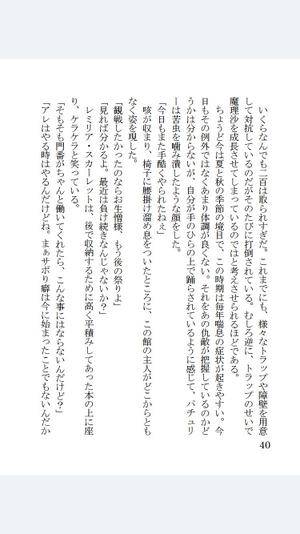 いくらなんでも二百は取られすぎだ。これまでにも、様々なトラップや障壁を用意
して対抗しているのだがそのたびに打倒されている。むしろ逆に、トラップのせいで
魔理沙を成長させてしまっているのではと考えさせられるほどである。
ちょうど今は夏と秋の季節の境目で、この時期は毎年喘息の症状が起きやすい。今
日もその例外ではなくあまり体調が良くない。それをあの仇敵が把握しているのかど
うかは分からないが、自分が手のひらの上で踊らされているように感じて、パチュリ
ーは苦虫を噛み潰したような顔をした。
「今日もまた手酷くやられたねぇ」
咳が収まり、椅子に腰掛け溜め息をついたところに、この館の主人がどこからとも
なく姿を現した。
「観戦したかったのならお生憎様、もう後の祭りよ」
「見れば分かるよ。最近は負け続きなんじゃない?」
レミリア・スカーレットは、後で収納するために高く平積みしてあった本の上に座
り、ケラケラと笑っている。
「そもそも門番がちゃんと働いてくれたら、こんな事にはならないんだけど?」
「アレはやる時はやるんだけどね。まぁサボり癖は今に始まったことでもないんだか
40